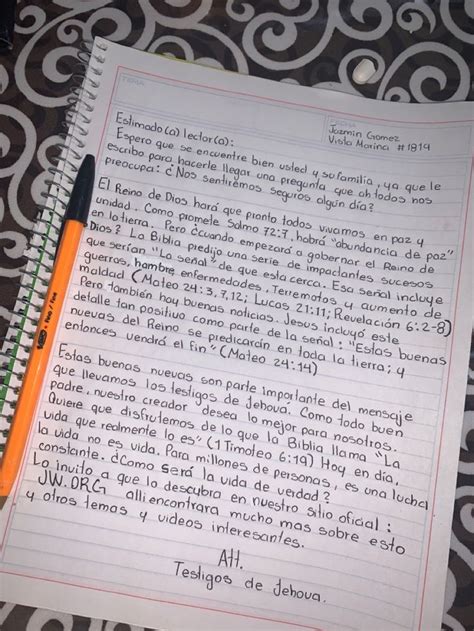 Jazmin Gomez
Vista Marina #1819
Estimado(a) lector(a):
Espero que se encuentre bien usted y su familia, ya que le
escribo para hacerle llegar una pregunta que ah todos nos
preocupa: ¿Nos sentiremos seguros algun día?
El Reino de Dios hará que pronto todos vivamos en paz y
unidad. Como promete Salmo 72:7, habrá "abundancia de paz"
en la tierra. Pero ¿cuando empezará a gobernar el Reino de
Dios? La Biblia predijo una serie de impactantes sucesos
que serían "La señal" de que esta cerca. Esa señal incluye
guerras, hambre, enfermedades, Terremotos y aumento de
maldad (Mateo 24:3,7,12; Lucas 21:11; Revelación 6:2-8)
Pero también hay buenas noticias. Jesus incluyó este
detalle tan positivo como parte de la señal: "Estas buenas
nuevas del Reino se predicarán en toda la tierra; y
entonces vendrá el fin" (Mateo 24:14)
Estas buenas nuevas son parte importante del mensaje
que llevamos los testigos de Jehová. Como todo buen
padre, nuestro creador desea lo mejor para nosotros.
Quiere que disfrutemos de lo que la Biblia llama "La
vida que realmente lo es" (1 Timoteo 6:19) Hoy en día,
la vida no es vida. Para millones de personas, es una lucha
constante. ¿Como será la vida de verdad?
Lo invito a que lo descubra en nuestro sitio oficial:
JW.ORG alli encontrara mucho mas sobre esto
y otros temas y videos interesantes.
Att.
Testigos de Jehova.